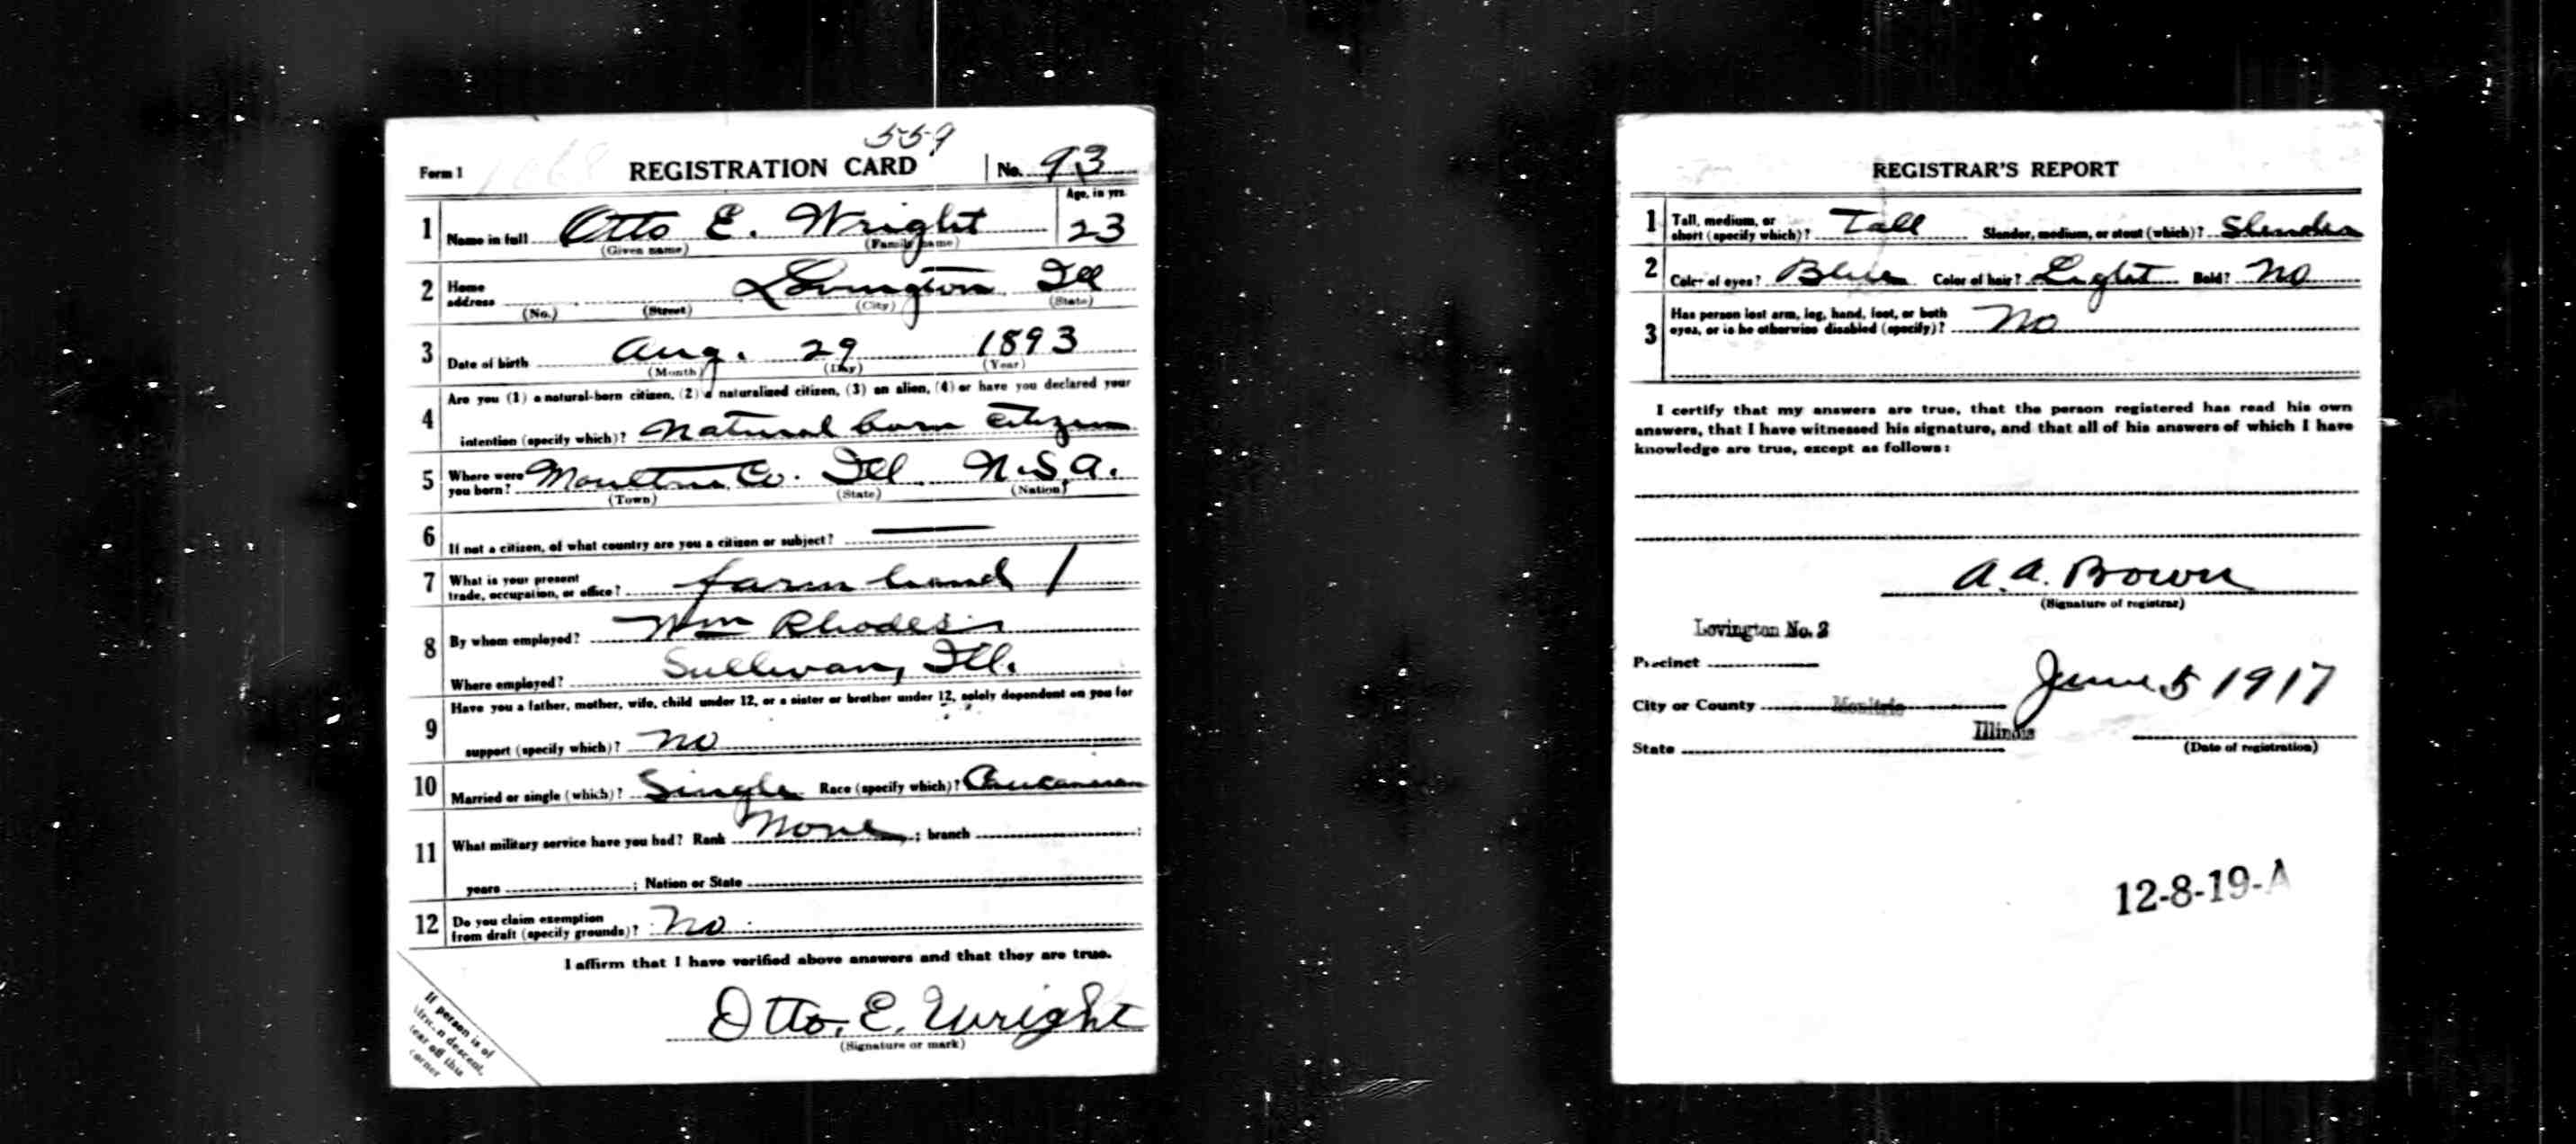 559
Form 1 REGISTRATION CARD No. 93
Age, in yrs.
1 Name in full Otto E. Wright 23
(Given name) (Family name)
2 Home address Lovington Ill
(No.) (Street) (City) (State)
3 Date of birth Aug. 29 1893
(Month) (Day) (Year)
Are you (1) a natural-born citizen, (2) a naturalized citizen, (3) an alien, (4) or have you declared your
4 intention (specify which)? Natural born citizen
5 Where were you born? Moultrie Co. Ill U.S.A.
(Town) (State) (Nation)
6 If not a citizen, of what country are you a citizen or subject? —
7 What is your present
trade, occupation, or office? farm hand /
8 By whom employed? Wm Rhodes
Where employed? Sullivan, Ill.
Have you a father, mother, wife, child under 12, or a sister or brother under 12, solely dependent on you for
9 support (specify which)? No
10 Married or single (which)? Single Race (specify which)? Caucasian
11 What military service have you had? Rank None ; branch ;
years ; Nation or State
12 Do you claim exemption
from draft (specify grounds)? No
I affirm that I have verified above answers and that they are true.
Otto. E. Wright
(Signature or mark)
If person is of
African descent,
tear off this
corner
REGISTRAR'S REPORT
1 Tall, medium, or
short (specify which)? Tall Slender, medium, or stout (which)? Slender
2 Color of eyes? Blue Color of hair? Light Bald? No
3 Has person lost arm, leg, hand, foot, or both
eyes, or is he otherwise disabled (specify)? No
I certify that my answers are true, that the person registered has read his own
answers, that I have witnessed his signature, and that all of his answers of which I have
knowledge are true, except as follows:
A. A. Brown
(Signature of registrar)
Lovington No. 2
Precinct
City or County Moultrie June 5 1917
State Illinois
(Date of registration)
12-8-19-A